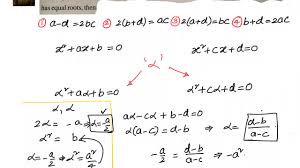 has equal roots, then
① a-d=2bc ② 2(b+d)=ac ③ 2(a+d)=bc ④ b+d=2ac
x²+ax+b=0 x²+cx+d=0
'α'
α²+aα+b=0 α²+cα+d=0
α, α
2α = -a ⇒ α=-a/2
α² = b
α=-a/2 ⇒ α²=a²/4
aα-cα+b-d=0
α(a-c)=d-b ⇒ α = d-b/a-c
-a/2 = d-b/a-c ⇒ -a²